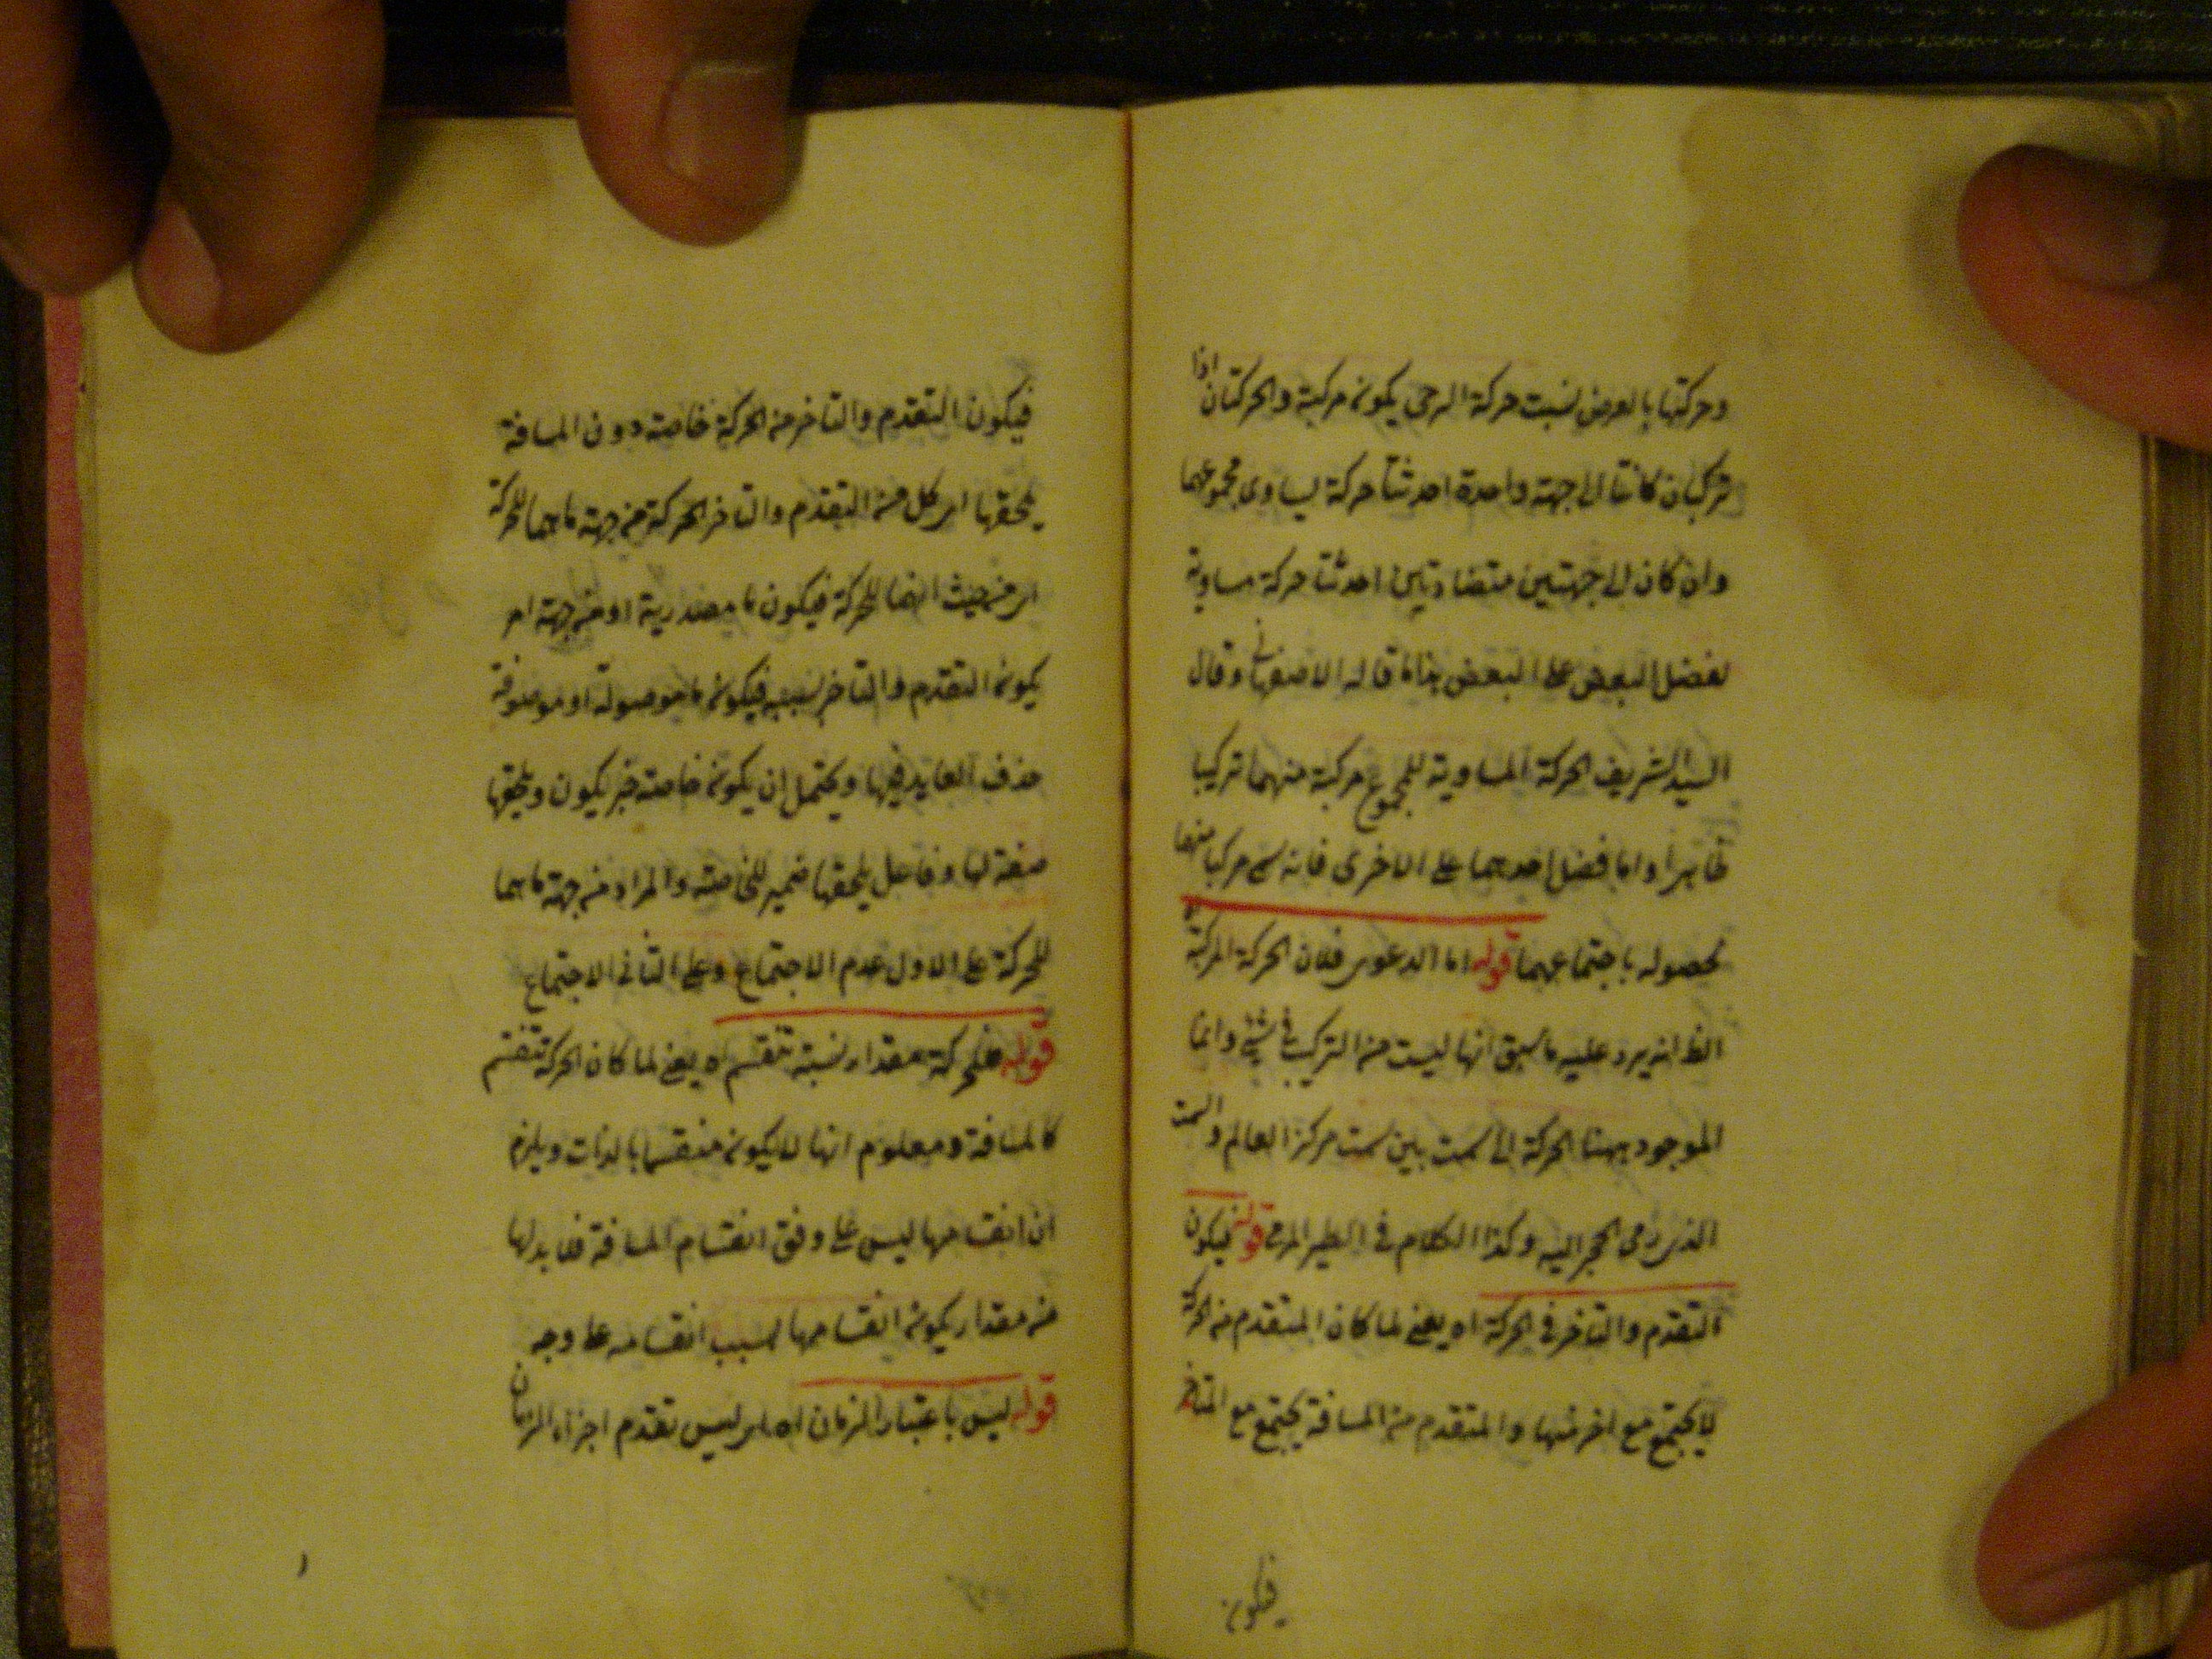 وحركتها بالعرض نسبت حركة الرحى يكون مركبة والحركتان اذا
تركبان كانتا الى جهة واحدة احدثتا حركة يساوى مجموعهما
وان كان الى جهتين متضادتين احدثتا حركة مساوية
لفضل البعض على البعض هذا ما قاله الاصفهانى وقال
السيد الشريف الحركة المساوية للمجموع مركبة منهما تركيبا
ظاهرا واما فضل احدهما على الاخرى فانه سمى مركبا منهما
لحصوله باجتماعهما قوله اما الدعوى فلان الحركة المركبة
الظ انه يرد عليه ما سبق انها ليست من التركيب فى شئ وانما
الموجود ههنا الحركة الى سمت بين سمت مركز العالم والسمت
الذى رمى الحجر اليه وكذا الكلام فى الطير المرمى قوله فيكون
التقدم والتاخر فى الحركة اه يعنى لما كان المتقدم من الحركة
لا يجتمع مع اخر منها والمتقدم من المسافة يجتمع مع المتاخر
فيكون
فيكون التقدم والتاخر من الحركة خاصة دون المسافة
يلحقها اى كل من التقدم والتاخر الحركة من جهة ما هما للحركة
اى من حيث انهما للحركة فيكون ما مصدرية او من جهة امر
يكون التقدم والتاخر بسببه فيكون ما موصولة او موصوفة
حذف العايد فيها ويحتمل ان يكون خاصة خبر يكون ويلحقها
صفة لها وفاعل يلحقها ضمير للخاصة والمراد من جهة ما هما
للحركة على الاول عدم الاجتماع وعلى الثانى الاجتماع
قوله فللحركة مقدار نسبة تنقسم اه يعنى لما كان الحركة تنقسم
كالمسافة ومعلوم انها لا يكون منقسما بالذات ويلزم
ان انقسامها ليس على وفق انقسام المسافة فلا بد لها
من مقدار يكون انقسامها بسبب انقسامه على وجه
قوله ليس باعتبار الزمان اه اى ليس تقدم اجزاء الزمان